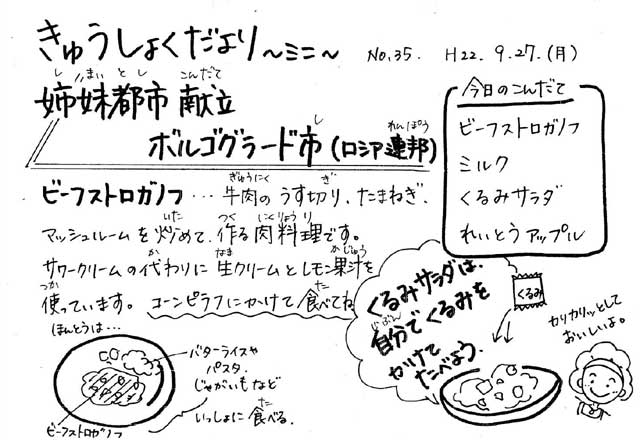 きゅうしょくだより〜ミニ〜 No.35. H22.9.27.(月)
姉妹都市 献立
しまいとし こんだて
ボルゴグラード市(ロシア連邦)
し れんぽう
今日のこんだて
ビーフストロガノフ
ミルク
くるみサラダ
れいとうアップル
ビーフストロガノフ…牛肉のうす切り、たまねぎ、
ぎゅうにく ぎ
マッシュルームを炒めて、作る肉料理です。
いた つく にくりょうり
サワークリームの代わりに生クリームとレモン果汁を
か なま かじゅう
使っています。コーンピラフにかけて食べてね
つか た
ほんとうは…
バターライスや
パスタ、
じゃがいもなど
いっしょに食べる。
た
ビーフストロガノフ
くるみサラダは、
自分でくるみを
じぶん
かけて
たべよう。
くるみ
カリカリッとして
おいしいよ。